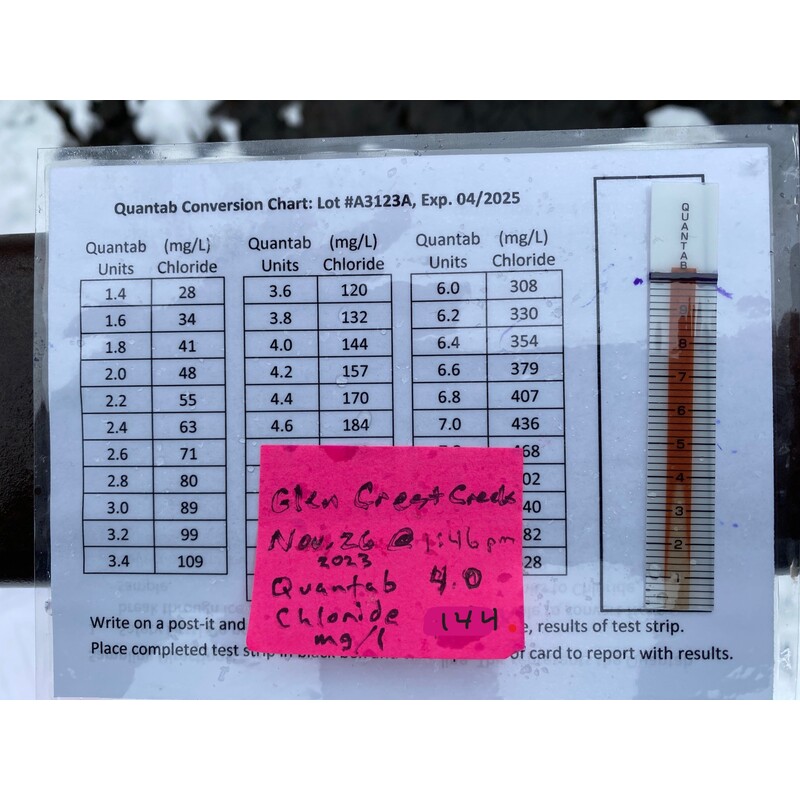 Quantab Conversion Chart: Lot #A3123A, Exp. 04/2025
Quantab (mg/L) Quantab (mg/L) Quantab (mg/L)
Units Chloride Units Chloride Units Chloride
1.4 28 3.6 120 6.0 308
1.6 34 3.8 132 6.2 330
1.8 41 4.0 144 6.4 354
2.0 48 4.2 157 6.6 379
2.2 55 4.4 170 6.8 407
2.4 63 4.6 184 7.0 436
2.6 71 68
2.8 80 02
3.0 89 40
3.2 99 82
3.4 109 28
Glen Crest Creek
Nov, 26 @ 1:46 pm
2023
Quantab 4.0
Chloride 144
mg/l
Write on a post-it and e, results of test strip.
Place completed test strip in of card to report with results.
QUANTAB
9
8
7
6
5
4
3
2
1